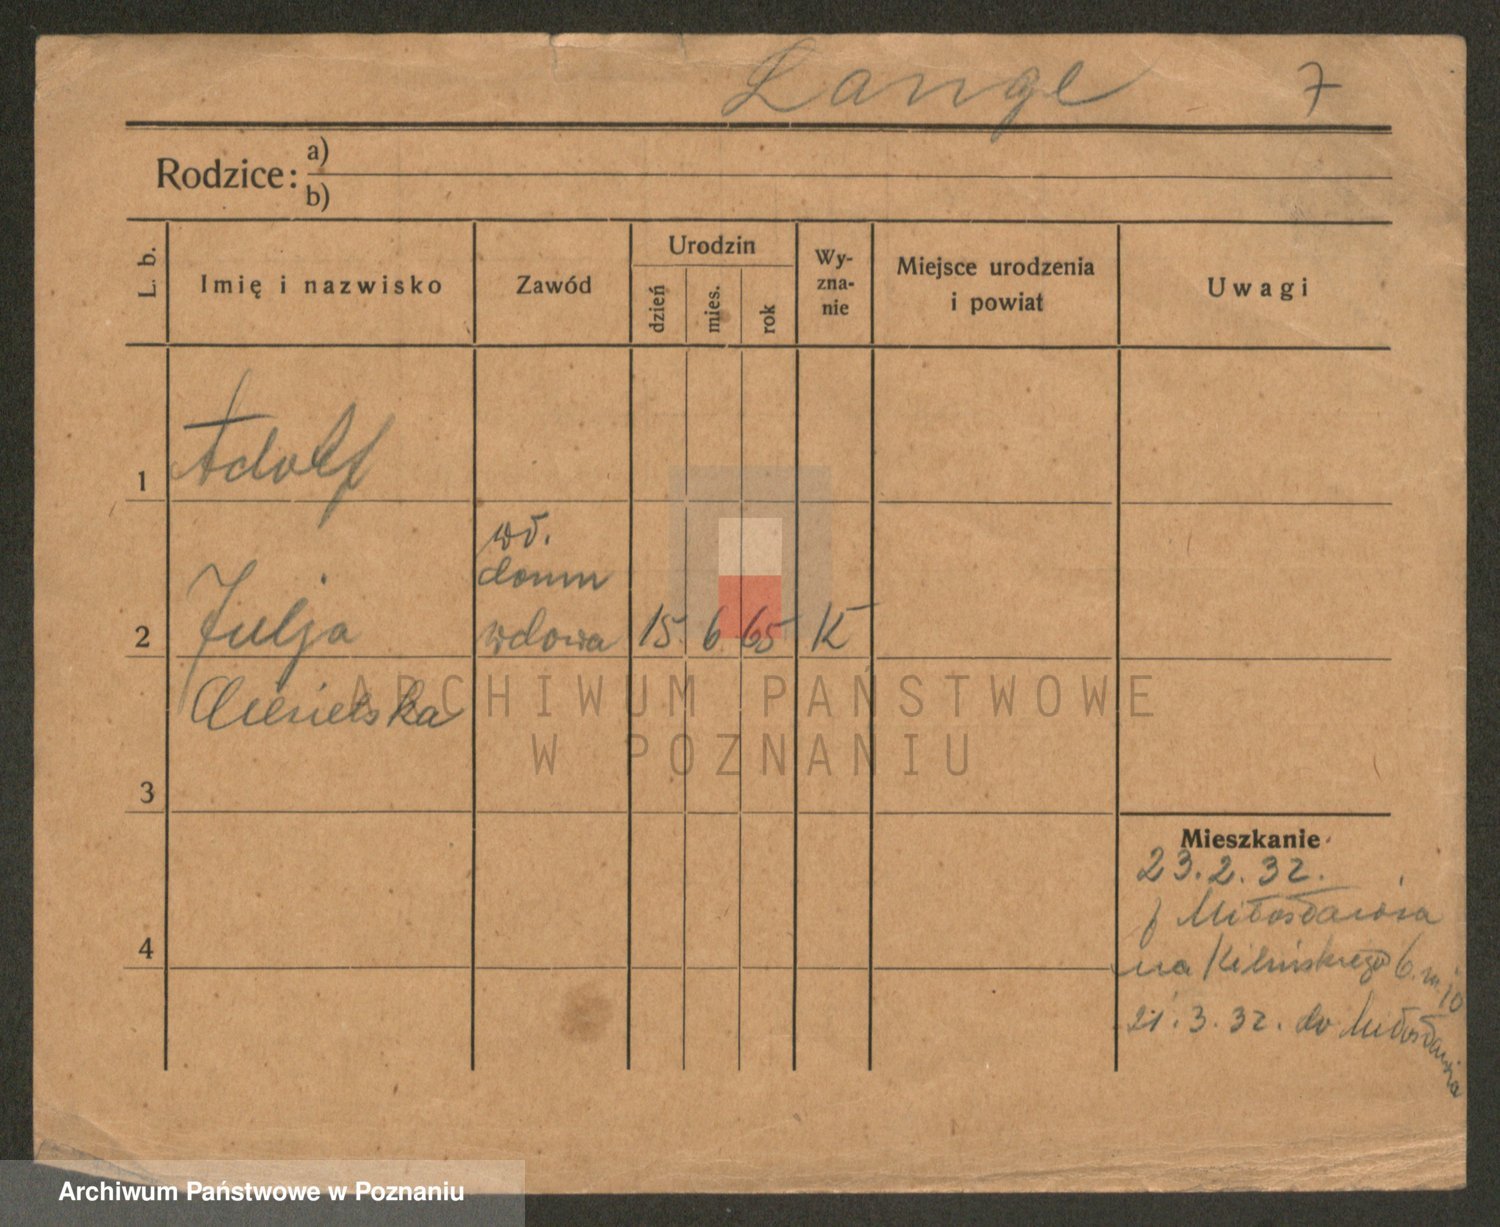 Lange 7
Rodzice: a)
b)
L. b.
Imię i nazwisko
Zawód
Urodzin
dzień
mies.
rok
Wy-
zna-
nie
Miejsce urodzenia
i powiat
Uwagi
1 Adolf
wł.
domu
2 Julja wdowa 15. 6 65 K
ARCHIWUM PAŃSTWOWE
W POZNANIU
3
Mieszkanie
23.2.32.
z Miłosławia
na Kilińskiego 6. m 10
4
21.3.32. do Miłosławia
Archiwum Państwowe w Poznaniu